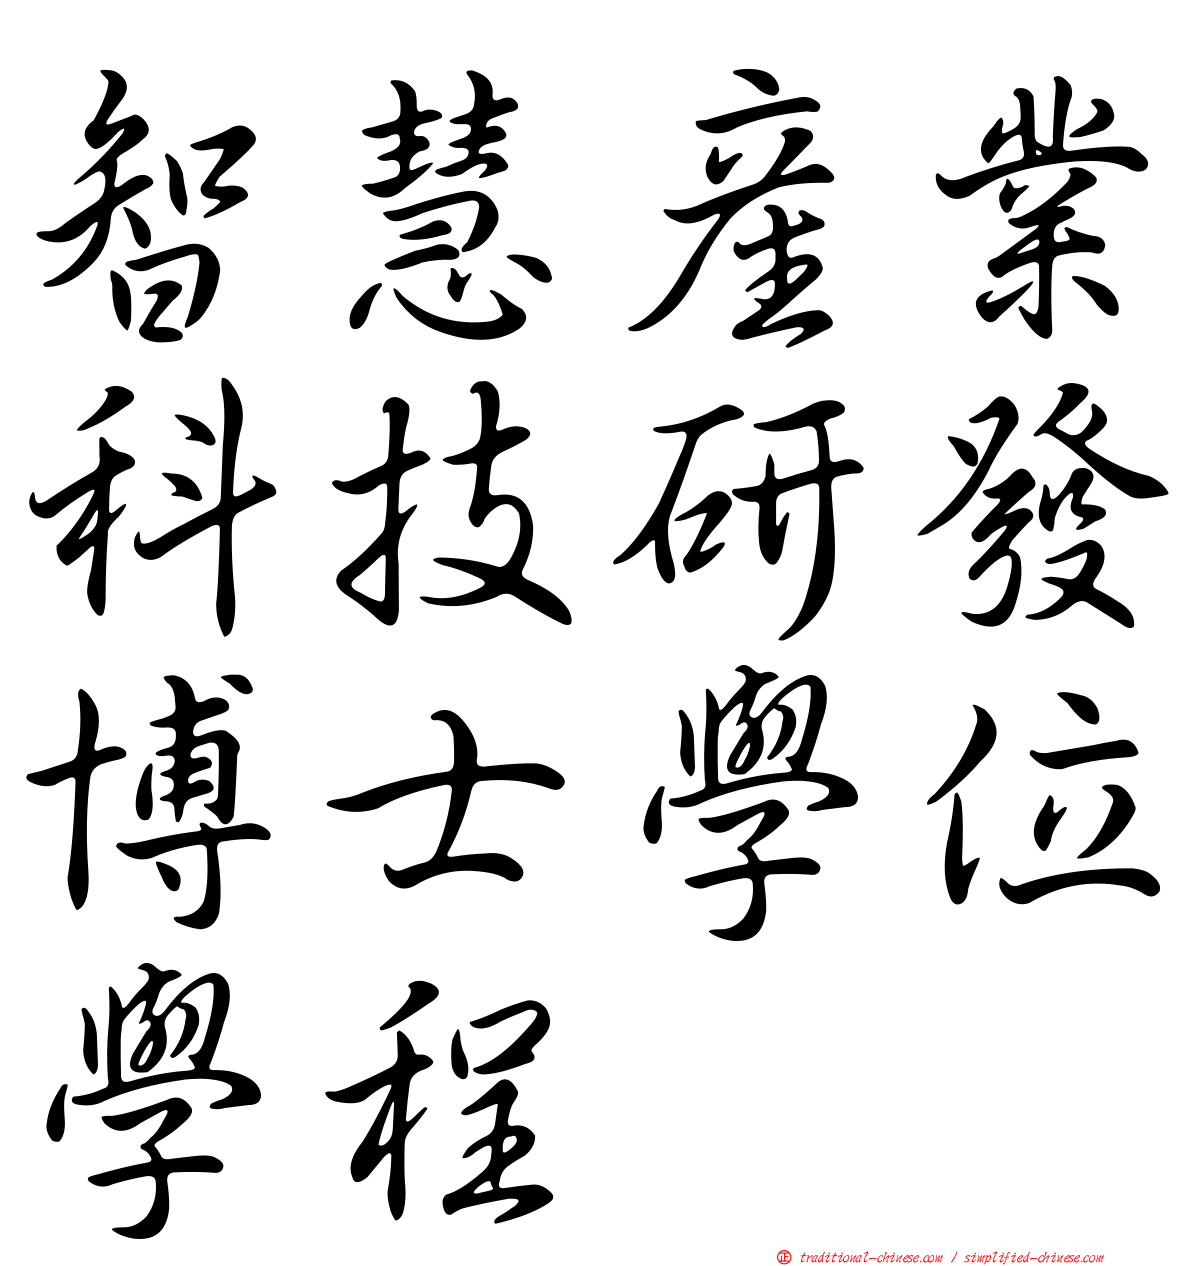 智慧產業
科技研發
博士學位
學程
正 traditional-chinese.com / simplified-chinese.com